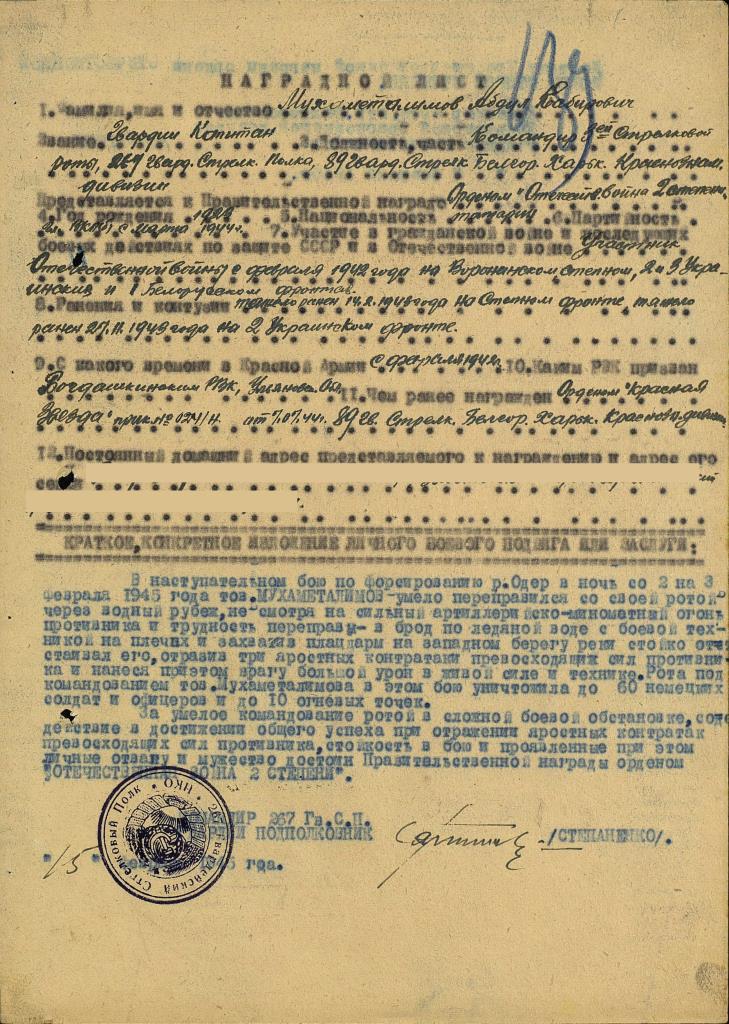 НАГРАДНОЙ ЛИСТ
1.Фамилия,имя и отчество Мухаметалимов Абдул Сабирович
Звание. Гвардии Капитан 3.Должность,часть Командир 8ей Стрелковой
роты, 267 гвард. Стрелк. Полка, 89 Гвард. Стрелк. Белгор. Харьк. Краснознам.
дивизии
Представляется к Правительственной награде Орденом "Отечеств. Война 2 степени
4.Год рождения 5.Национальность татарин 6.Партийность
ВКП(б) с марта 1944г. 7.Участие в гражданской войне и последующих
боевых действиях по защите СССР и в Отечественной войне Участник
Отечественной войны с февраля 1942 года на Воронежском, степном, 2 и 3 Укра-
инских и 1 Белорусском фронтах.
8.Ранения и контузии тяжело ранен 14.2.1943 года на Степном фронте, тяжело
ранен 27.11.1943 года на 2 Украинском фронте.
9.С какого времени в Красной Армии с февраля 10.Каким РВК призван
Богдашкинским РВК, Ульяновск. Обл. 11.Чем ранее награжден Орденом "Красная
Звезда" прик. № 034/н от 7.07.44г. 89 гв. Стрелк. Белгор. Харьк. Краснозн. дивизии
12.Постоянный домашний адрес представляемого к награждению и адрес его
семьи
КРАТКОЕ,КОНКРЕТНОЕ ИЗЛОЖЕНИЕ ЛИЧНОГО БОЕВОГО ПОДВИГА ИЛИ ЗАСЛУГИ:
В наступательном бою по форсированию р.Одер в ночь со 2 на 3
февраля 1945 года тов.МУХАМЕТАЛИМОВ-умело переправился со своей ротой
через водный рубеж,не смотря на сильный артиллерийско-миноматный огонь
противника и трудность переправы- в брод по ледяной воде с боевой тех-
никой на плечах и захватив плацдарм на западном берегу реки стойко отс
стаивал его,отразив три яростных контратаки превосходящих сил противни-
ка и нанеся приэтом врагу большой урон в живой силе и технике.Рота под
командованием тов.Мухаметалимова в этом бою уничтожила до 60 немецких
солдат и офицеров и до 10 огневых точек.
За умелое командование ротой в сложной боевой обстановке,соде
действие в достижении общего успеха при отражении яростных контратак
превосходящих сил противника,стойкость в бою и проявленные при этом
личные отвагу и мужество достоин Правительственной награды орденом
"ОТЕЧЕСТВЕННАЯ ВОЙНА 2 СТЕПЕНИ".
267 Гв.С.П.
ПОДПОЛКОВНИК /СТЕПАНЕНКО/.
"15" года.
Гвардейский Стрелковый Полк • НКО •